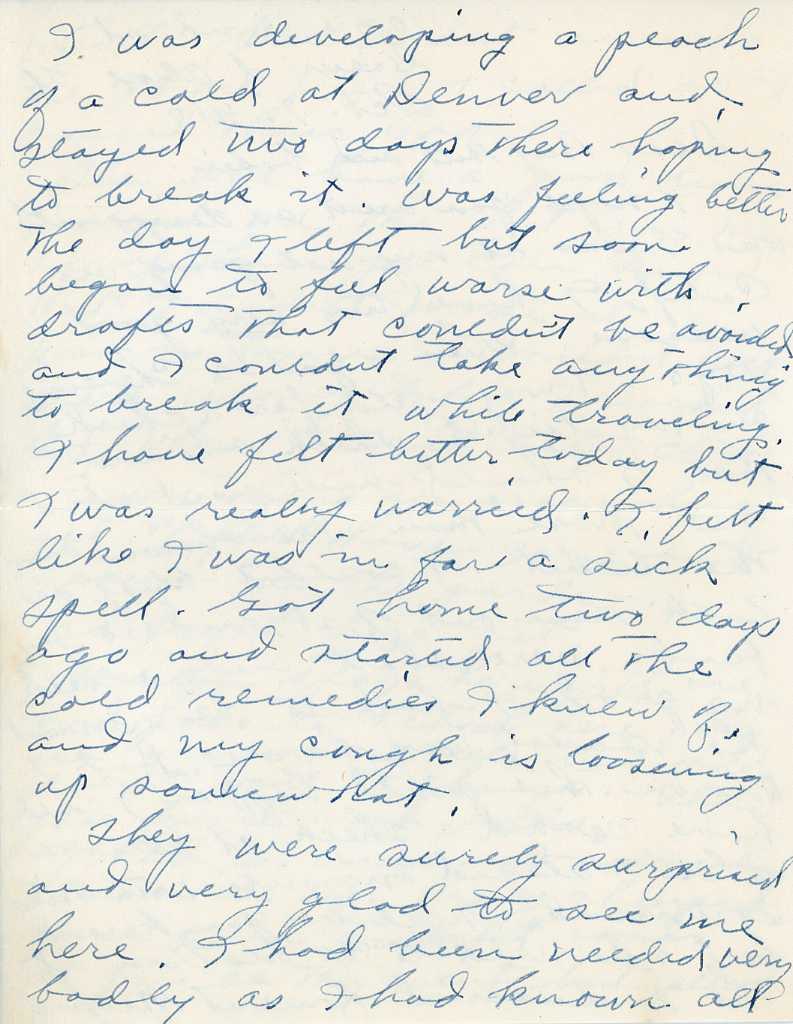 I was developing a peach
of a cold at Denver and
stayed two days there hoping
to break it. Was feeling better
the day I left but soon
began to feel worse with
drafts that couldn't be avoided
and I couldn't take anything
to break it while traveling.
I have felt better today but
I was really worried. I felt
like I was in for a sick
spell. Got home two days
ago and started all the
cold remedies I knew of
and my cough is loosening
up somewhat.
They were surely surprised
and very glad to see me
here. I had been needed very
badly as I had known all